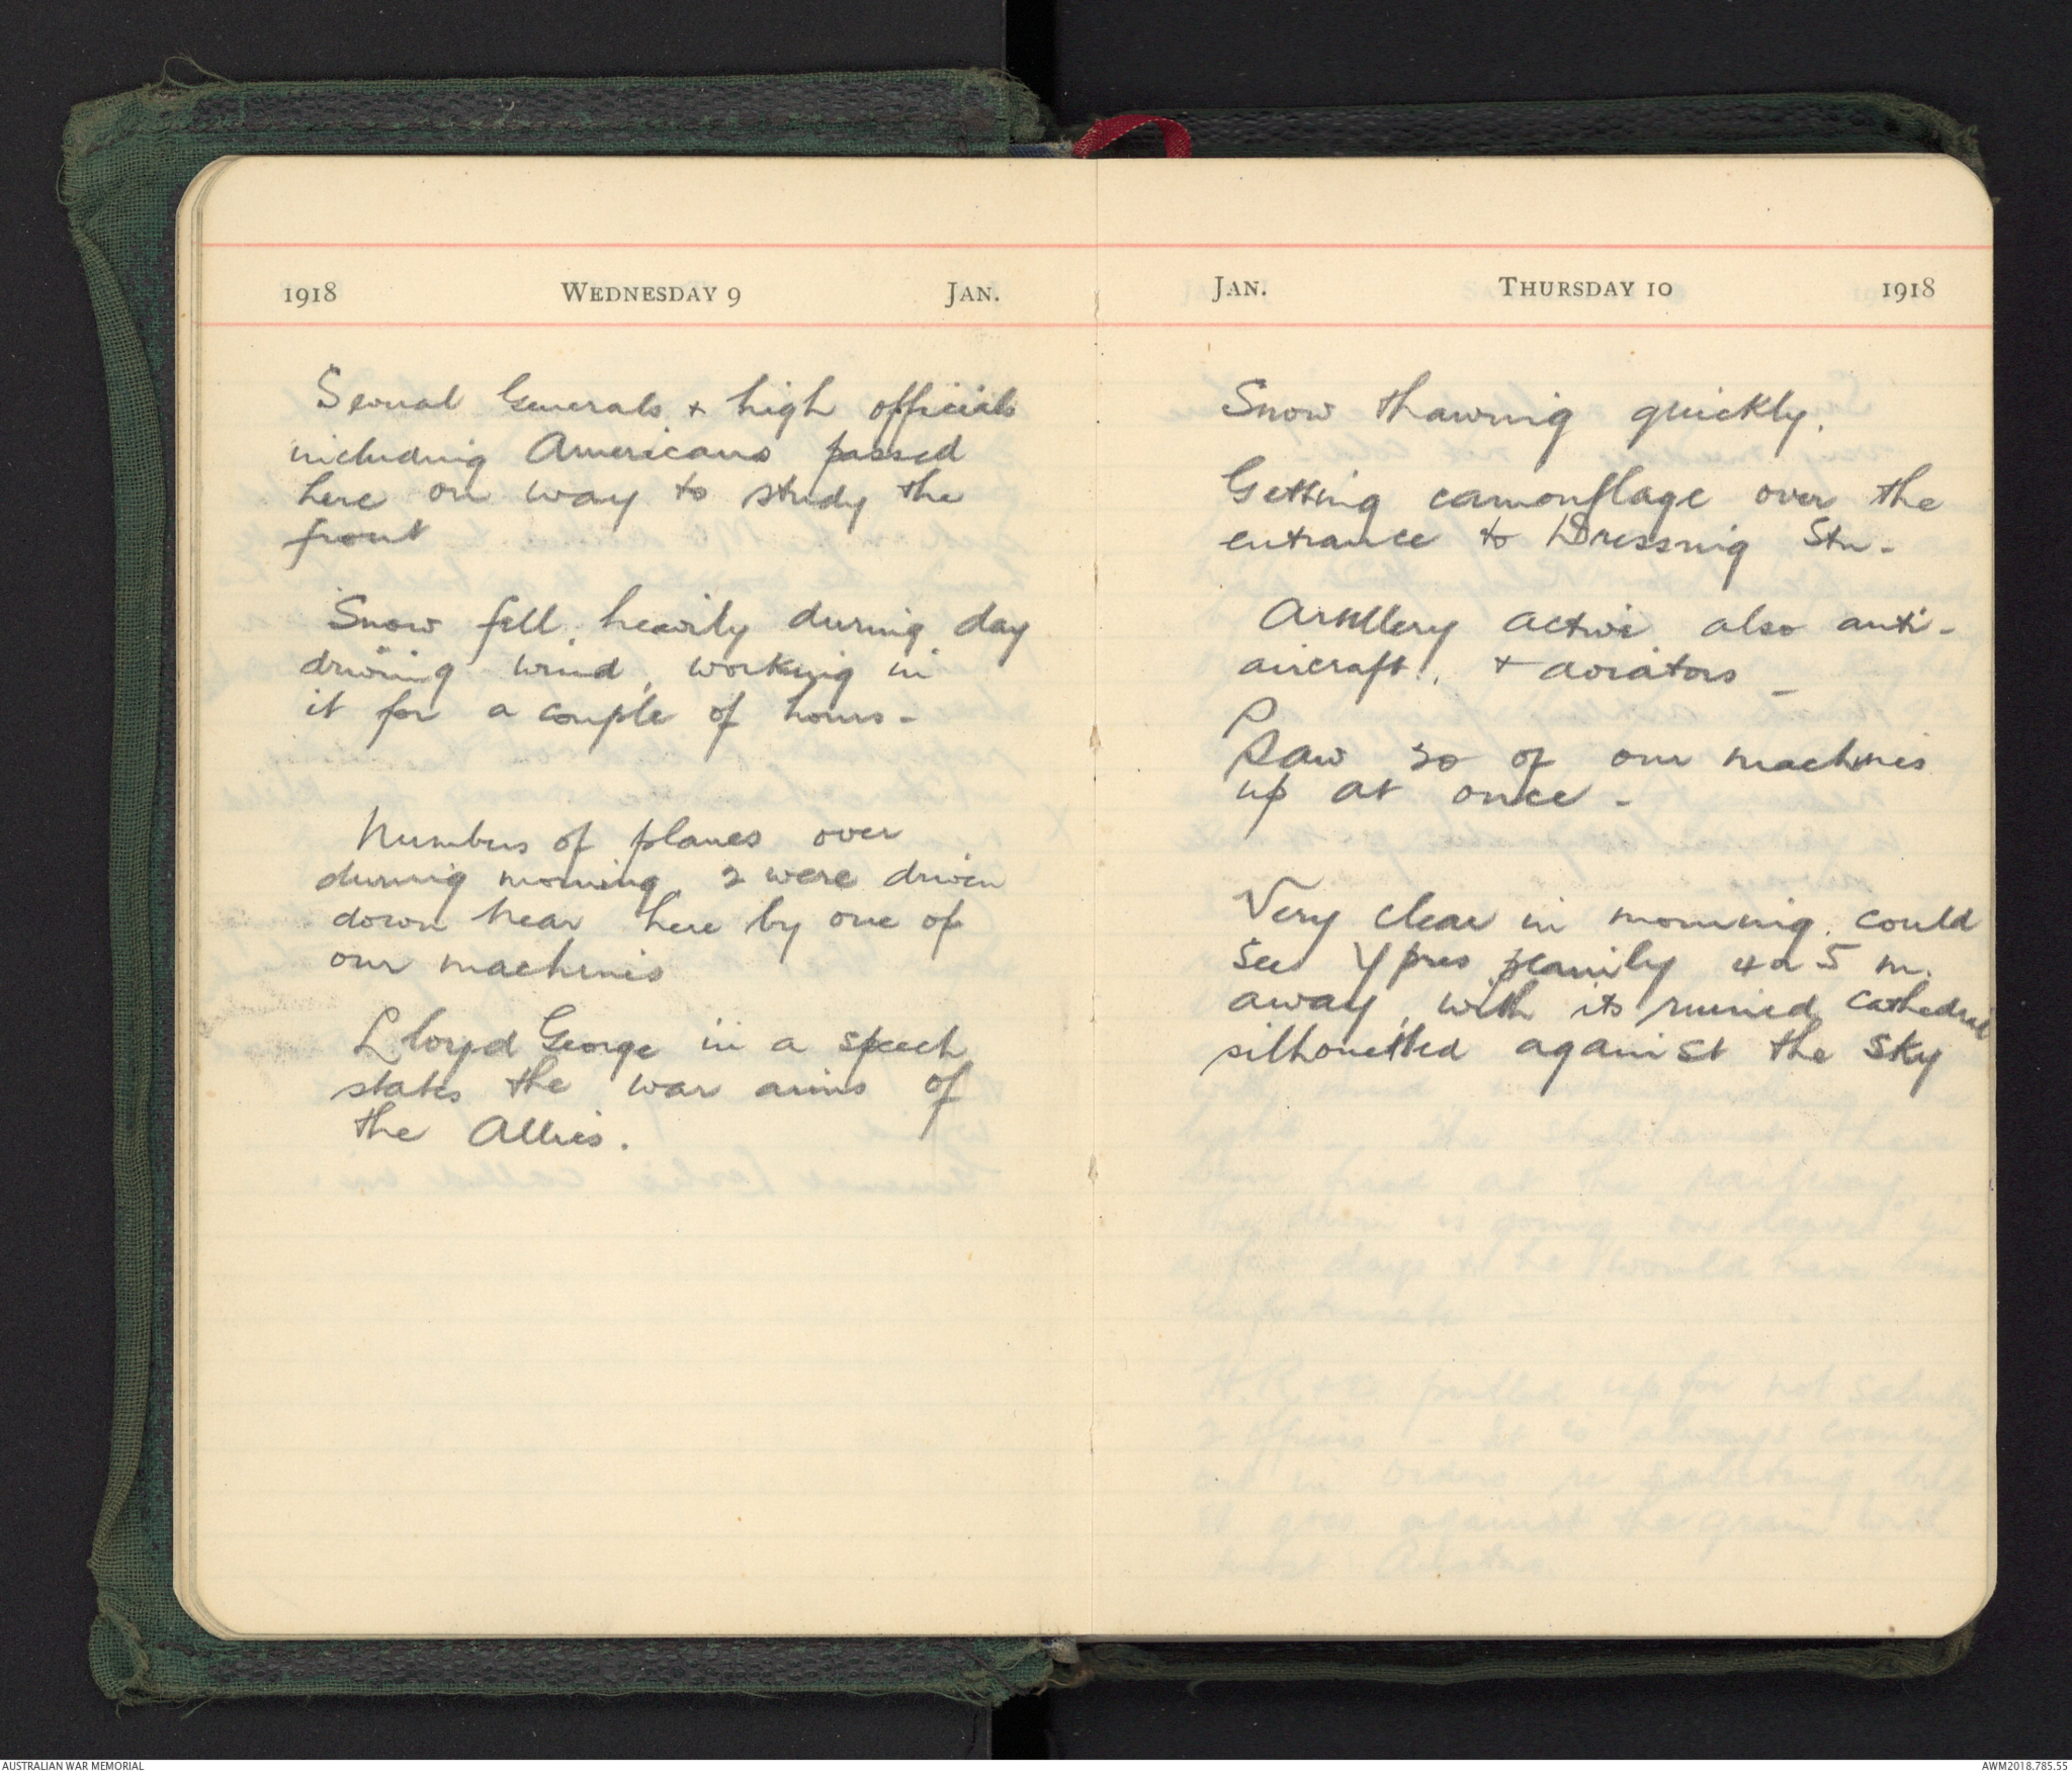 1918 WEDNESDAY 9 JAN.
Several Generals + high officials
including Americans passed
here on way to study the
front
Snow fell, heavily during day
driving wind, working in
it for a couple of hours -
Numbers of planes over
during morning, 2 were driven
down near here by one of
our machines
Lloyd George in a speech
states the war aims of
the Allies.
JAN. THURSDAY 10 1918
Snow thawing quickly.
Getting camouflage over the
entrance to Dressing Stn -
Artillery active also anti-
aircraft, + aviators -
Saw 30 of our machines
up at once -
Very clear in morning, could
see Ypres plainly 4 or 5 m.
away, with its ruined cathedral
silhouetted against the sky
AUSTRALIAN WAR MEMORIAL
AWM2018.785.55